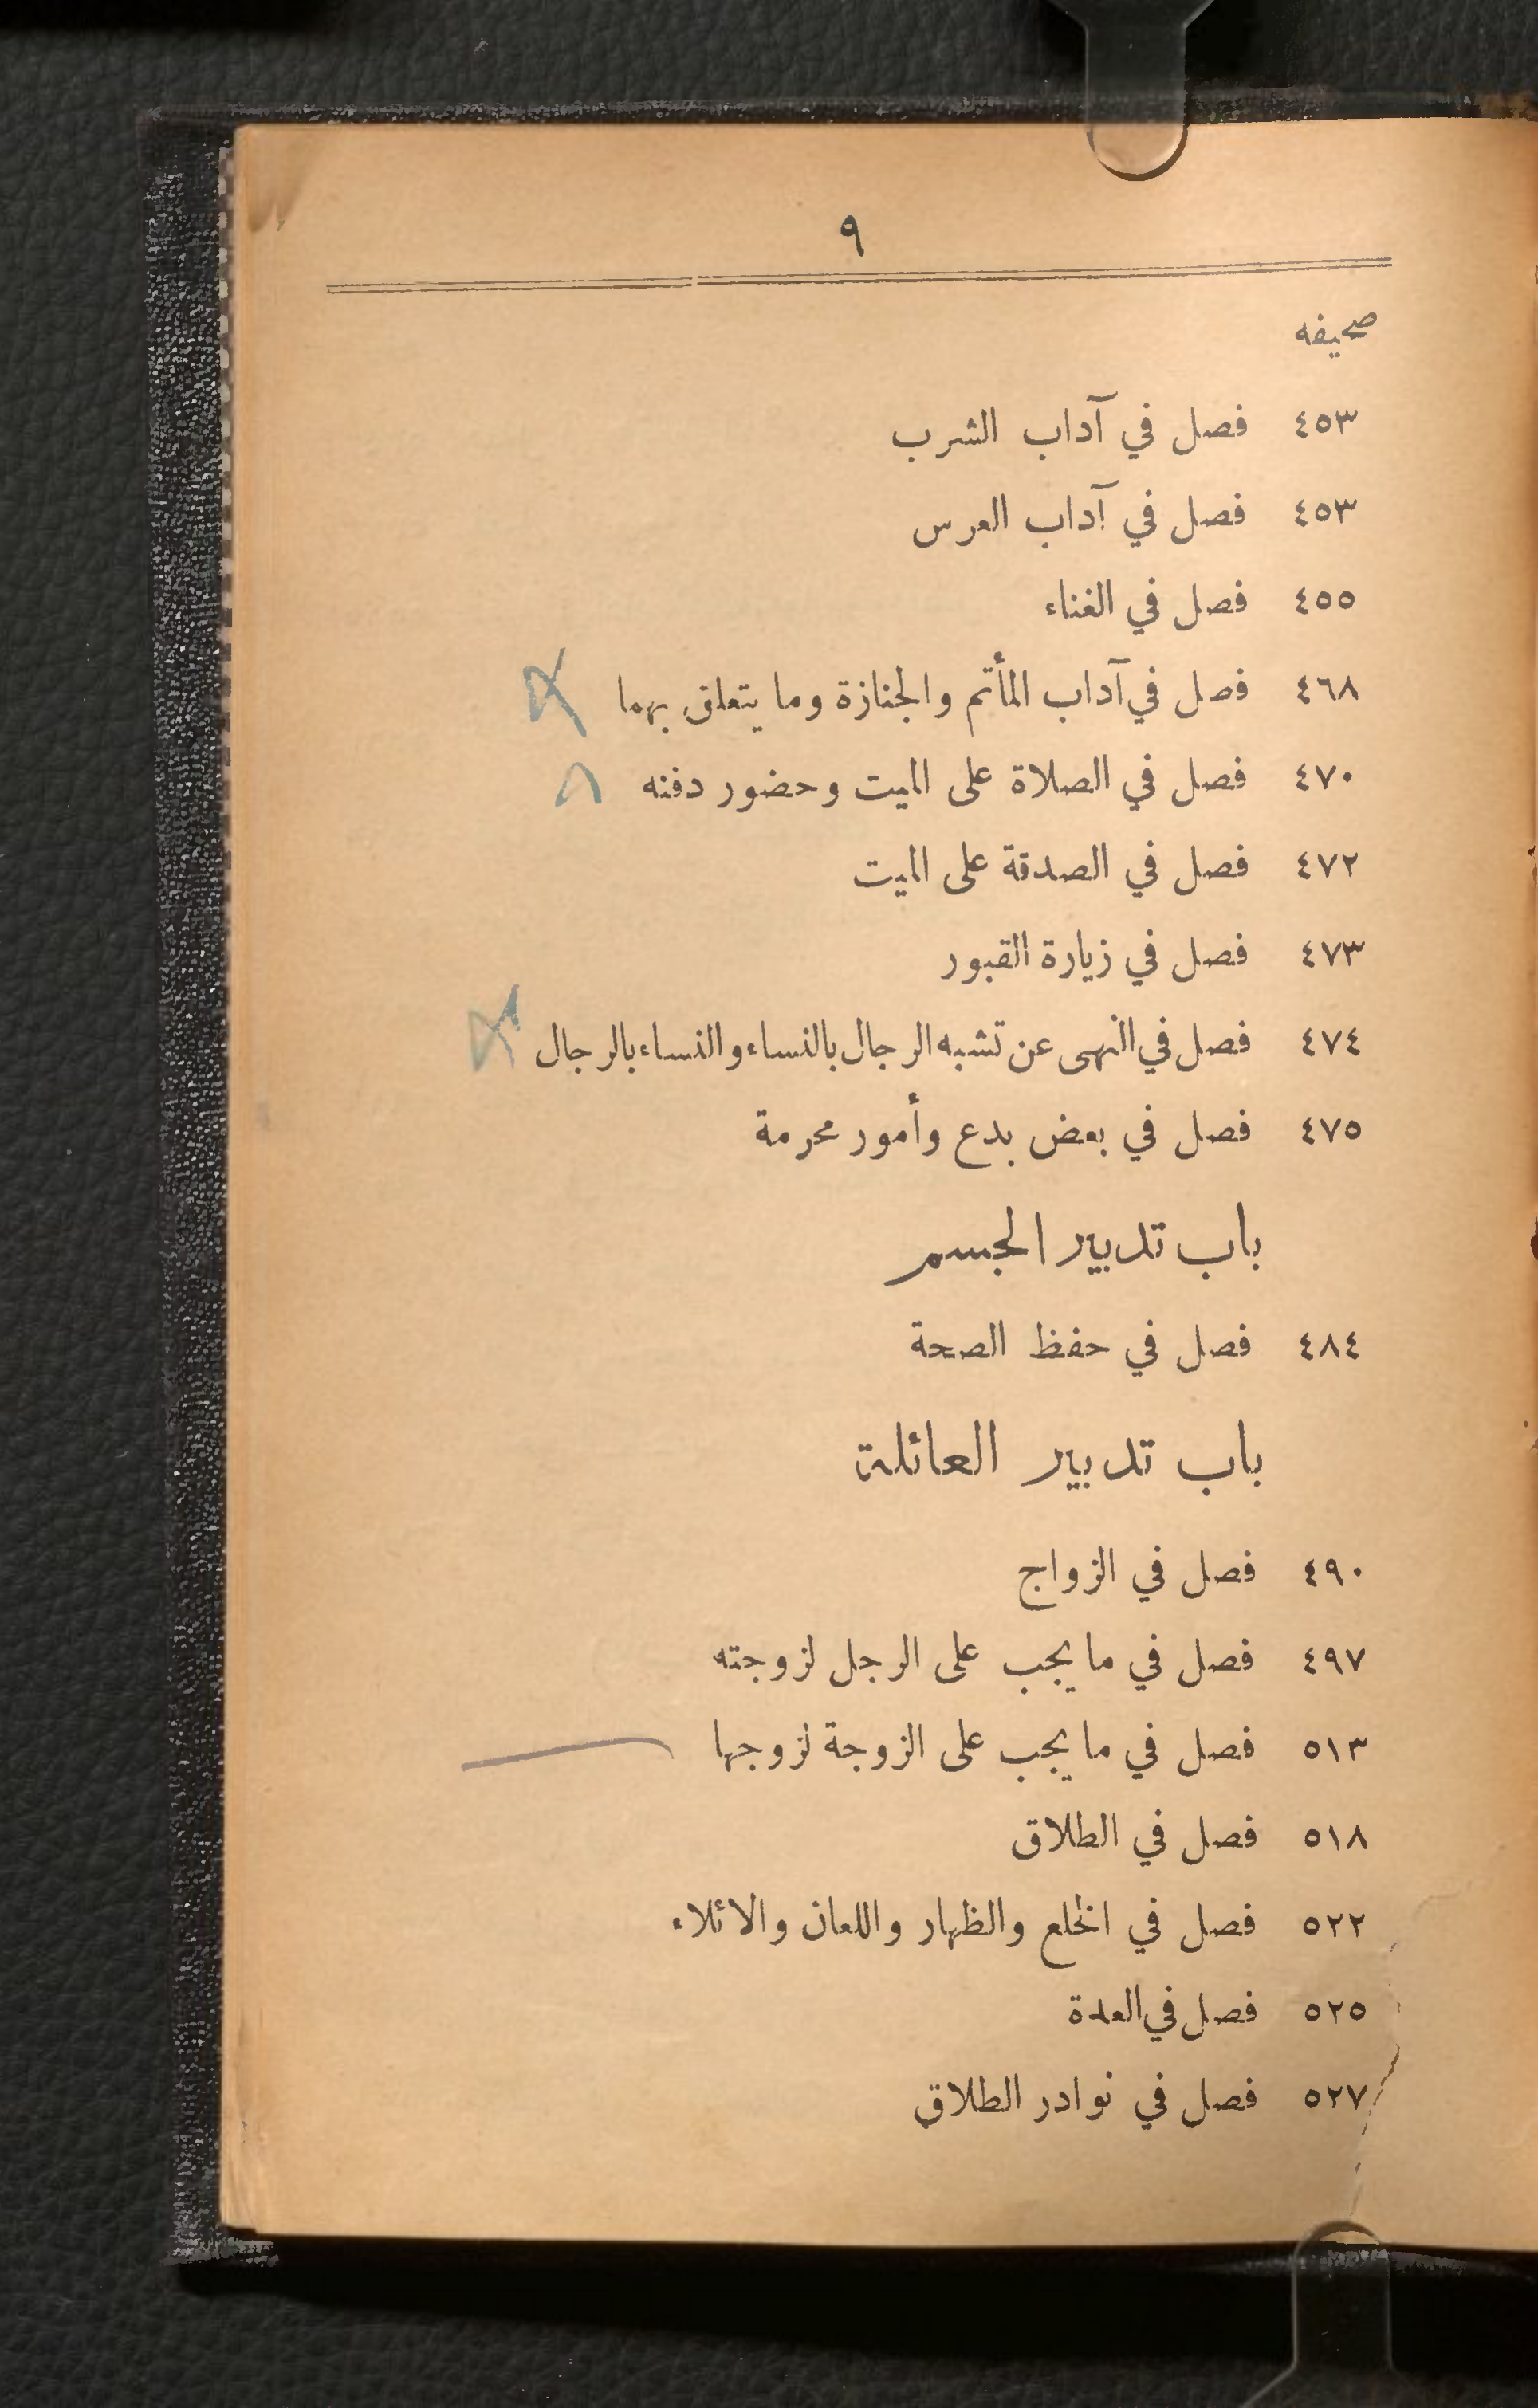 ٩
صحيفه
٤٥٣ فصل في آداب الشرب
٤٥٣ فصل في آداب العرس
٤٥٥ فصل في الغناء
٤٦٨ فصل في آداب المأتم والجنازة وما يتعلق بهما
٤٧٠ فصل في الصلاة على الميت وحضور دفنه
٤٧٢ فصل في الصدقة على الميت
٤٧٣ فصل في زيارة القبور
٤٧٤ فصل في النهى عن تشبه الرجال بالنساء والنساء بالرجال
٤٧٥ فصل في بعض بدع وأمور محرمة
باب تدبير الجسم
٤٨٤ فصل في حفظ الصحة
باب تدبير العائلة
٤٩٠ فصل في الزواج
٤٩٧ فصل في ما يجب على الرجل لزوجته
٥١٣ فصل في ما يجب على الزوجة لزوجها
٥١٨ فصل في الطلاق
٥٢٢ فصل في الخلع والظهار واللعان والائلاء
٥٢٥ فصل في العدة
٥٢٧ فصل في نوادر الطلاق